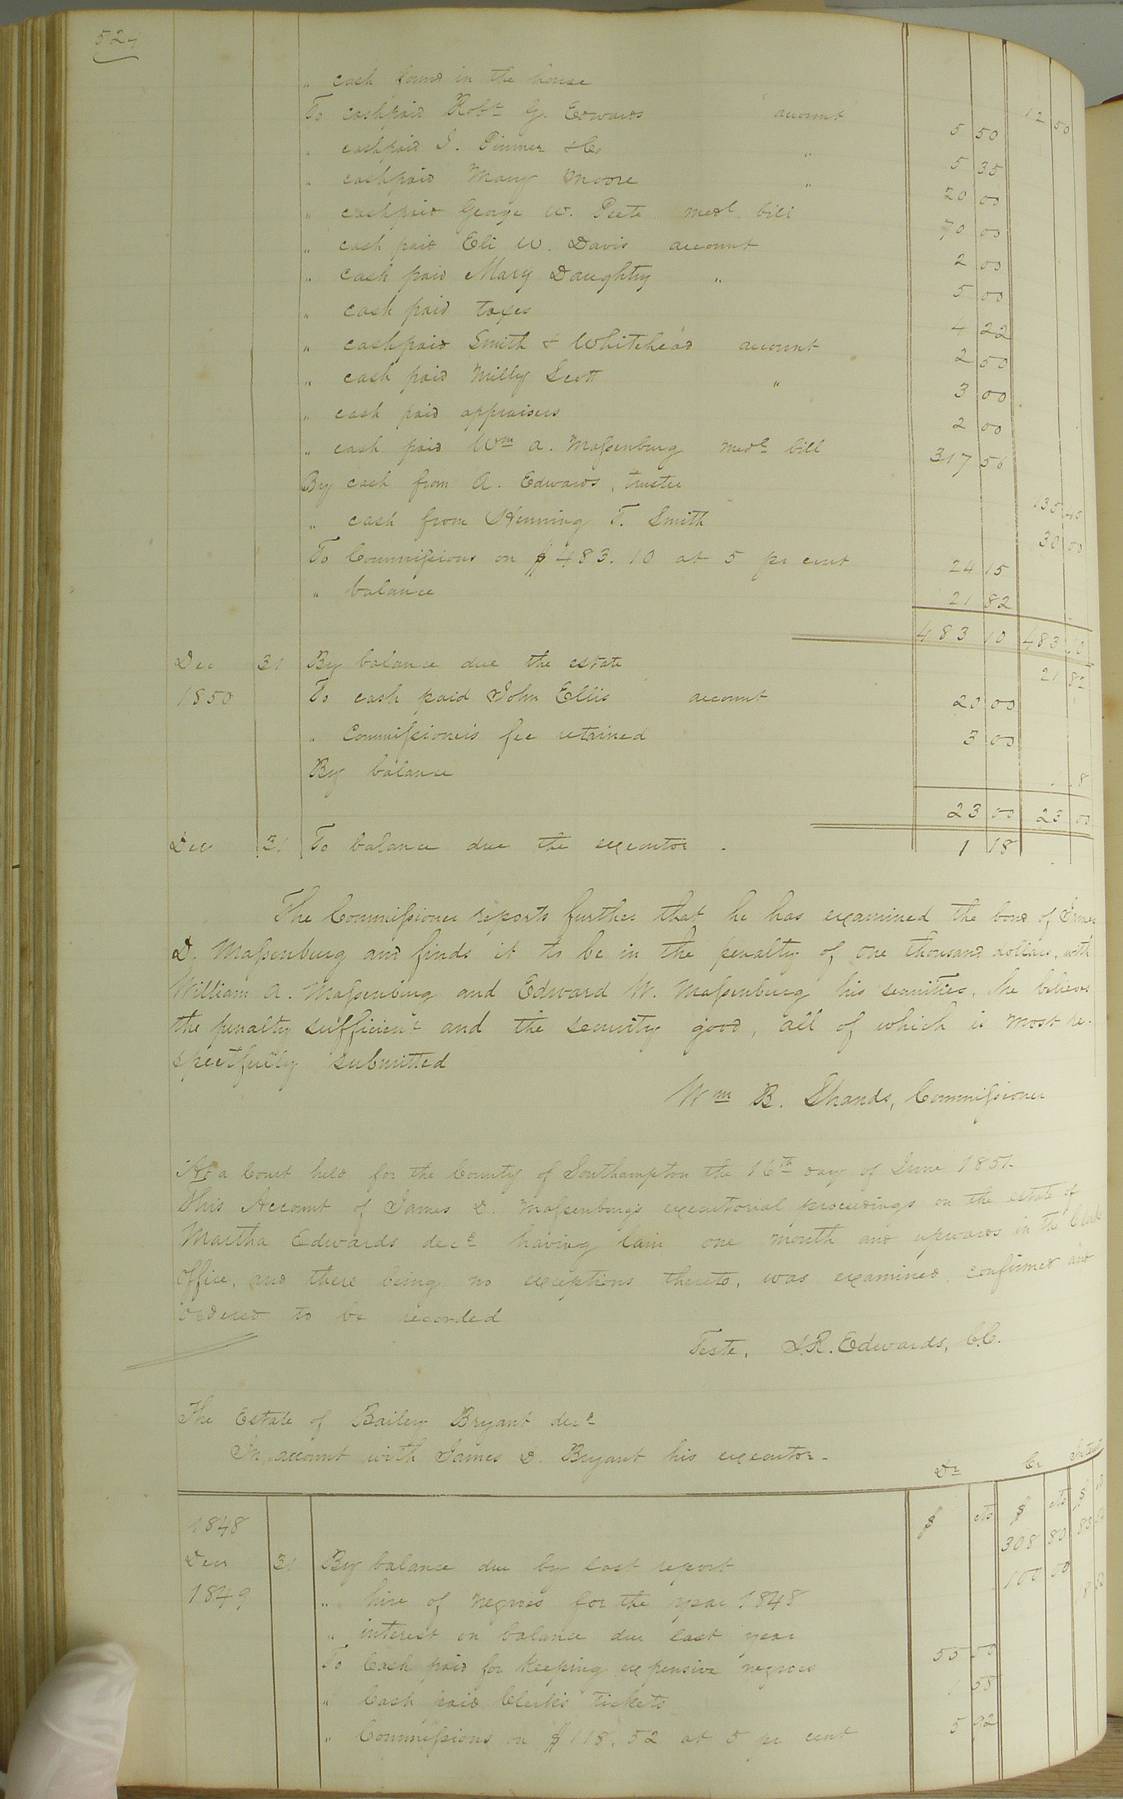 " cash found in the house 12 50
To cash paid Robt G. Edwards account 5 50
" cash paid J. Pinner & Co " 5 35
" cash paid Mary Moore " 20 00
" cash paid George W. Peete medl bill 70 00
" cash paid Eli W. Davis account 2 00
" cash paid Mary Daughtry " 5 00
" cash paid taxes 4 22
" cash paid Smith & Whitehead account 2 50
" cash paid Milly Scott " 3 00
" cash paid appraisers 2 00
" cash paid Wm A. Massenburg medl bill 317 56
By cash from A. Edwards, trustee
" cash from Henning T. Smith 30 00
To Commissions on $483.10 at 5 pr cent 24 15
" balance 21 82
483 10 483 10
Dec 31 By balance due the estate 21 82
1850 To cash paid John Ellis account 20 00
" Commissioner's fee retained 3 00
By balance
23 00 23 00
Dec 31 To balance due the executor. 1 18
The Commissioner reports further that he has examined the bond of James
D. Massenburg and finds it to be in the penalty of one thousand dollars, with
William A. Massenburg and Edward W. Massenburg his securities, he believes
the penalty sufficient and the security good, all of which is most re-
spectfully submitted
Wm B. Shands, Commissioner
At a Court held for the County of Southampton the 16th day of June 1851.
This Account of James D. Massenburg's executorial proceedings on the estate of
Martha Edwards decd having lain one month and upwards in the Clerk's
office, and there being no exceptions thereto, was examined, confirmed and
ordered to be recorded
Teste, L.R. Edwards, C.C.
The Estate of Bailey Bryant decd
In account with James D. Bryant his executor.
Dr Cr Interest
$ cts $ cts $
1848
Dec 31 By balance due by last report 308 80
1849 " hire of negroes for the year 1848 100 00
" interest on balance due last year
To Cash paid for keeping expensive negroes 55 50
" Cash paid Clerk's tickets 1 58
" Commissions on $118.52 at 5 pr cent 5 92